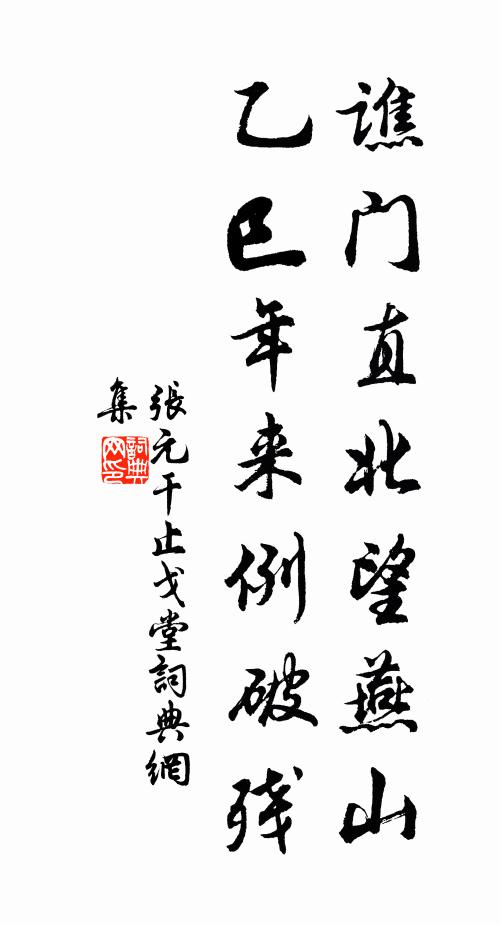 谯门直北望燕山
乙巳年来例破残
張元干止戈堂詞典網
集
詞典網印